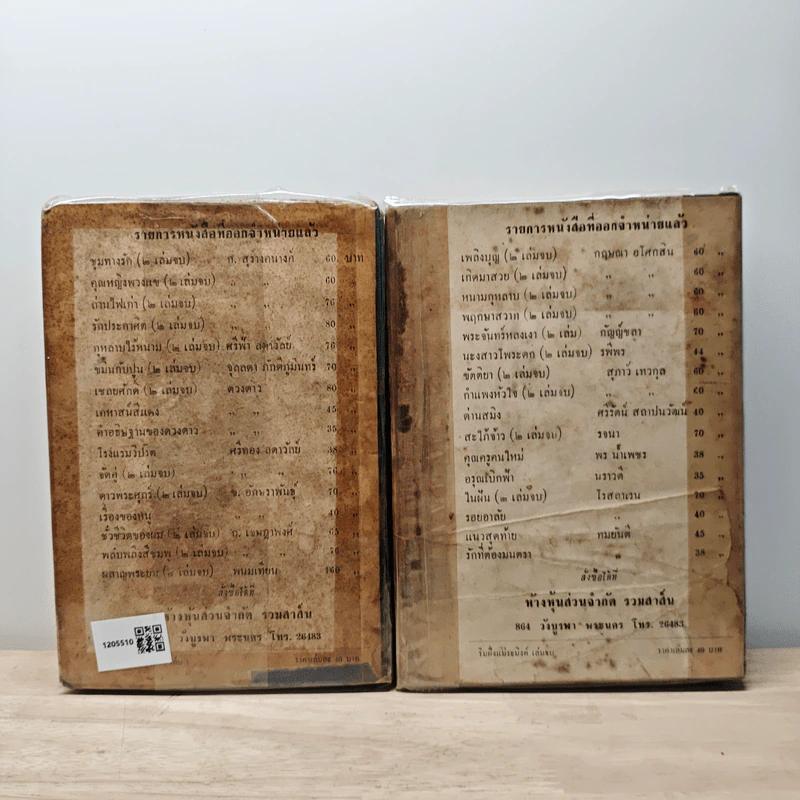 รายการหนังสือที่ออกจำหน่ายแล้ว
ชุมทางรัก (๒ เล่มจบ) ศ. สุรางคนางค์ 60 บาท
คุณหญิงพวงแข (๒ เล่มจบ) „ „ 60 „
ถ่านไฟเก่า (๒ เล่มจบ) „ „ 76 „
รักประกาศิต (๒ เล่มจบ) „ „ 80 „
กุหลาบไร้หนาม (๒ เล่มจบ) ศรีฟ้า ลดาวัลย์ 76 „
ขมิ้นกับปูน (๒ เล่มจบ) จุลลดา ภักดีภูมินทร์ 70 „
เชลยศักดิ์ (๒ เล่มจบ) ดวงดาว 80 „
เคหาสน์สีแดง „ „ 45 „
คำอธิษฐานของดวงดาว „ „ 35 „
โรงแรมวิปริต ศรีทอง ลดาวัลย์ 38 „
(๒ เล่มจบ) „ „ 76 „
ดาวพระศุกร์ (๒ เล่มจบ) ข. อักษราพันธุ์ 70 „
เรื่องของหนู „ „ 40 „
ชั่วชีวิตของผม (๒ เล่มจบ) ถ. เชษฐาพงศ์ 65 „
(๒ เล่มจบ) „ „ 76 „
พนมเทียน 160 „
สั่งซื้อได้ที่
ห้างหุ้นส่วนจำกัด รวมสาส์น
วังบูรพา พระนคร โทร. 26483
1205510
รายการหนังสือที่ออกจำหน่ายแล้ว
เพลิงบุญ (๒ เล่มจบ) กฤษณา อโศกสิน 60 „
เกิดมาสวย (๒ เล่มจบ) „ „ 60 „
หนามกุหลาบ (๒ เล่มจบ) „ „ 60 „
พฤกษาสวาท (๒ เล่มจบ) „ „ 60 „
พระจันทร์หลงเงา (๒ เล่ม) กัญญ์ชลา 70 „
นะงสาวโพระดก (๒ เล่มจบ) รพีพร 44 „
ขัตติยา (๒ เล่มจบ) สุภาว์ เทวกุล 60 „
กำแพงหัวใจ (๒ เล่มจบ) „ „ 60 „
ด่านสมิง ศิริรัตน์ สถาปนวัฒน์ 40 „
สะใภ้จ้าว (๒ เล่มจบ) รจนา 70 „
คุณครูคนใหม่ พร น้ำเพชร 38 „
อรุณเบิกฟ้า นราวดี 35 „
ในฝัน (๒ เล่มจบ) โรสลาเรน 70 „
รอยอาลัย „ 40 „
แนวสุดท้าย ทมยันตี 45 „
รักที่ต้องมนตรา „ 38 „
สั่งซื้อได้ที่
ห้างหุ้นส่วนจำกัด รวมสาส์น
864 วังบูรพา พระนคร โทร. 26483